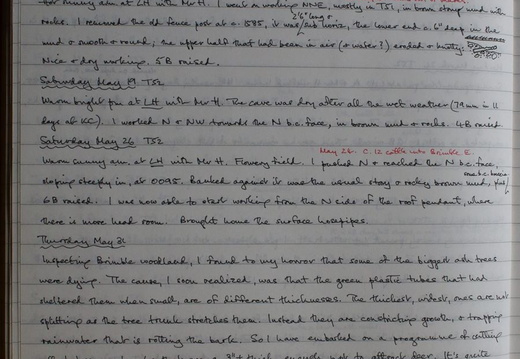 for sunny a.m. at LH with Mr H. I went on working NNE, mostly in TS1, in brown stony mud with
2'6" long &
rocks. I removed the old fence post at c. 1595, it was sub horiz, the lower end c.6" deep in the
mud & smooth & round, the upper half that had been in air (& water?) eroded &
Nice & dry working. 5B raised.
Saturday May 19. TS2
Warm bright p.m. at LH with Mr H. The cave was dry after all the wet weather (79mm in 11
days at KC). I worked N & NW towards the N b.c. face, in brown mud & rocks. 4B raised
Saturday May 26 TS2
May 28. C.12 cattle into Brimble E.
Warm sunny a.m. at LH with Mr H. Flowery field. I pushed N & reached the N b.c. face,
some b.c. breccia
sloping steeply in, at 0095. Banked against it was the usual stony & rocky brown mud, plus
6B raised. I was now able to start working from the N side of the roof pendant, where
there is more head room. Brought home the surface hosepipes.
Thursday May 31
Inspecting Brimble woodland, I found to my horror that some of the biggest ash trees
were dying. The cause, I soon realized, was that the green plastic tubes that had
sheltered them when small, are of different thicknesses. The thickest, widest, ones are not
splitting as the tree trunk stretches them. Instead they are constricting growth, & trapping
rainwater that is rotting the bark. So I have embarked on a programme of cutting
3" thick, enough not to attract deer. It's quite